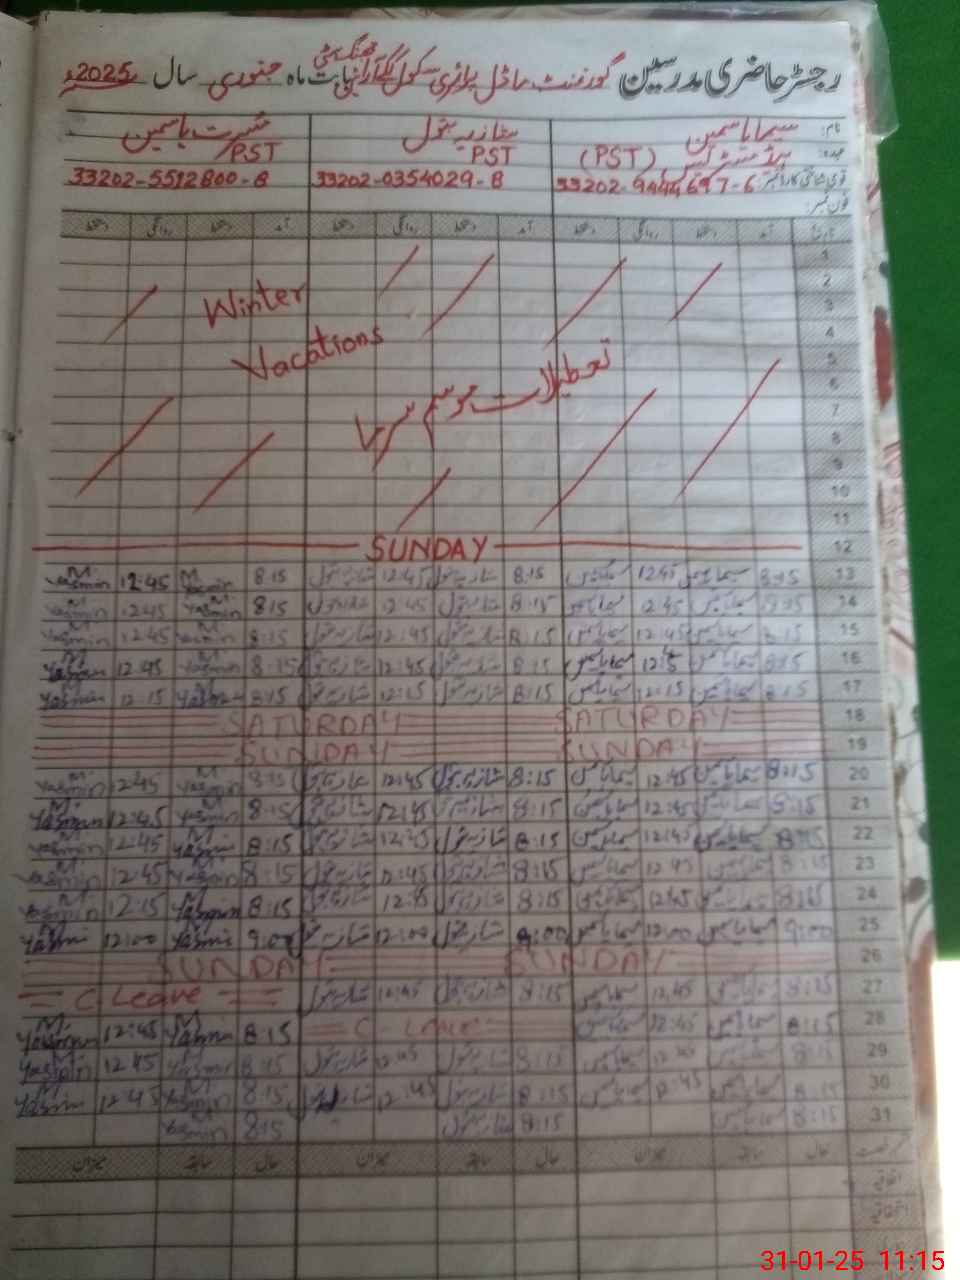 رجسٹر حاضری مدرسین گورنمنٹ ماڈل پرائمری سکول ماہ جنوری سال 2025ء
نام: سیما یاسمین شازیہ بتول مسرت یاسمین
عہدہ: ہیڈ مسٹریس (PST) PST PST
قومی شناختی کارڈ نمبر: 33202-9444697-6 33202-0354029-8 33202-5512800-8
فون نمبر:
تاریخ آمد دستخط روانگی دستخط آمد دستخط روانگی دستخط آمد دستخط روانگی دستخط
1
2
3
4
5
6
7
8
9
10
11
Winter
Vacations
تعطیلات موسم سرما
12 SUNDAY
13 8:15 سیما یاسمین 12:45 سیما یاسمین 8:15 شازیہ بتول 12:45 شازیہ بتول 8:15 M Yasmin 12:45 M Yasmin
14 8:15 سیما یاسمین 12:45 سیما یاسمین 8:15 شازیہ بتول 12:45 شازیہ بتول 8:15 M Yasmin 12:45 M Yasmin
15 8:15 سیما یاسمین 12:45 سیما یاسمین 8:15 شازیہ بتول 12:45 شازیہ بتول 8:15 M Yasmin 12:45 M Yasmin
16 8:15 سیما یاسمین سیما یاسمین 8:15 شازیہ بتول 12:45 شازیہ بتول 8:15 M Yasmin 12:45 M Yasmin
17 8:15 سیما یاسمین 12:15 سیما یاسمین 8:15 شازیہ بتول 12:15 شازیہ بتول 8:15 M Yasmin 12:15 M Yasmin
18 SATURDAY SATURDAY
19 SUNDAY SUNDAY
20 8:15 سیما یاسمین 12:45 سیما یاسمین 8:15 شازیہ بتول 12:45 شازیہ بتول 8:15 M Yasmin 12:45 M Yasmin
21 8:15 سیما یاسمین 12:45 سیما یاسمین 8:15 شازیہ بتول 12:45 شازیہ بتول 8:15 M Yasmin 12:45 M Yasmin
22 8:15 سیما یاسمین 12:45 سیما یاسمین 8:15 شازیہ بتول 12:45 شازیہ بتول 8:15 M Yasmin 12:45 M Yasmin
23 8:15 سیما یاسمین 12:45 سیما یاسمین 8:15 شازیہ بتول 12:45 شازیہ بتول 8:15 M Yasmin 12:45 M Yasmin
24 8:15 سیما یاسمین سیما یاسمین 8:15 شازیہ بتول شازیہ بتول 8:15 M Yasmin 12:15 M Yasmin
25 9:00 سیما یاسمین 12:00 سیما یاسمین 9:00 شازیہ بتول 12:00 شازیہ بتول 9:00 Yasmi 12:00 Yasmi
26 SUNDAY SUNDAY
27 8:15 سیما یاسمین 12:45 سیما یاسمین 8:15 شازیہ بتول 12:45 شازیہ بتول C Leave
28 8:15 سیما یاسمین 12:45 سیما یاسمین C-Leave 8:15 M Yasmin 12:45 M Yasmin
29 8:15 سیما یاسمین 12:45 سیما یاسمین 8:15 شازیہ بتول 12:45 شازیہ بتول 8:15 M Yasmin 12:45 M Yasmin
30 8:15 سیما یاسمین 12:45 سیما یاسمین 8:15 شازیہ بتول 12:45 8:15 M Yasmin 12:45 M Yasmin
31 8:15 سیما یاسمین 8:15 شازیہ بتول 8:15 M Yasmin
حال سابقہ میزان حال سابقہ میزان حال سابقہ میزان
اتفاقیہ
31-01-25 11:15